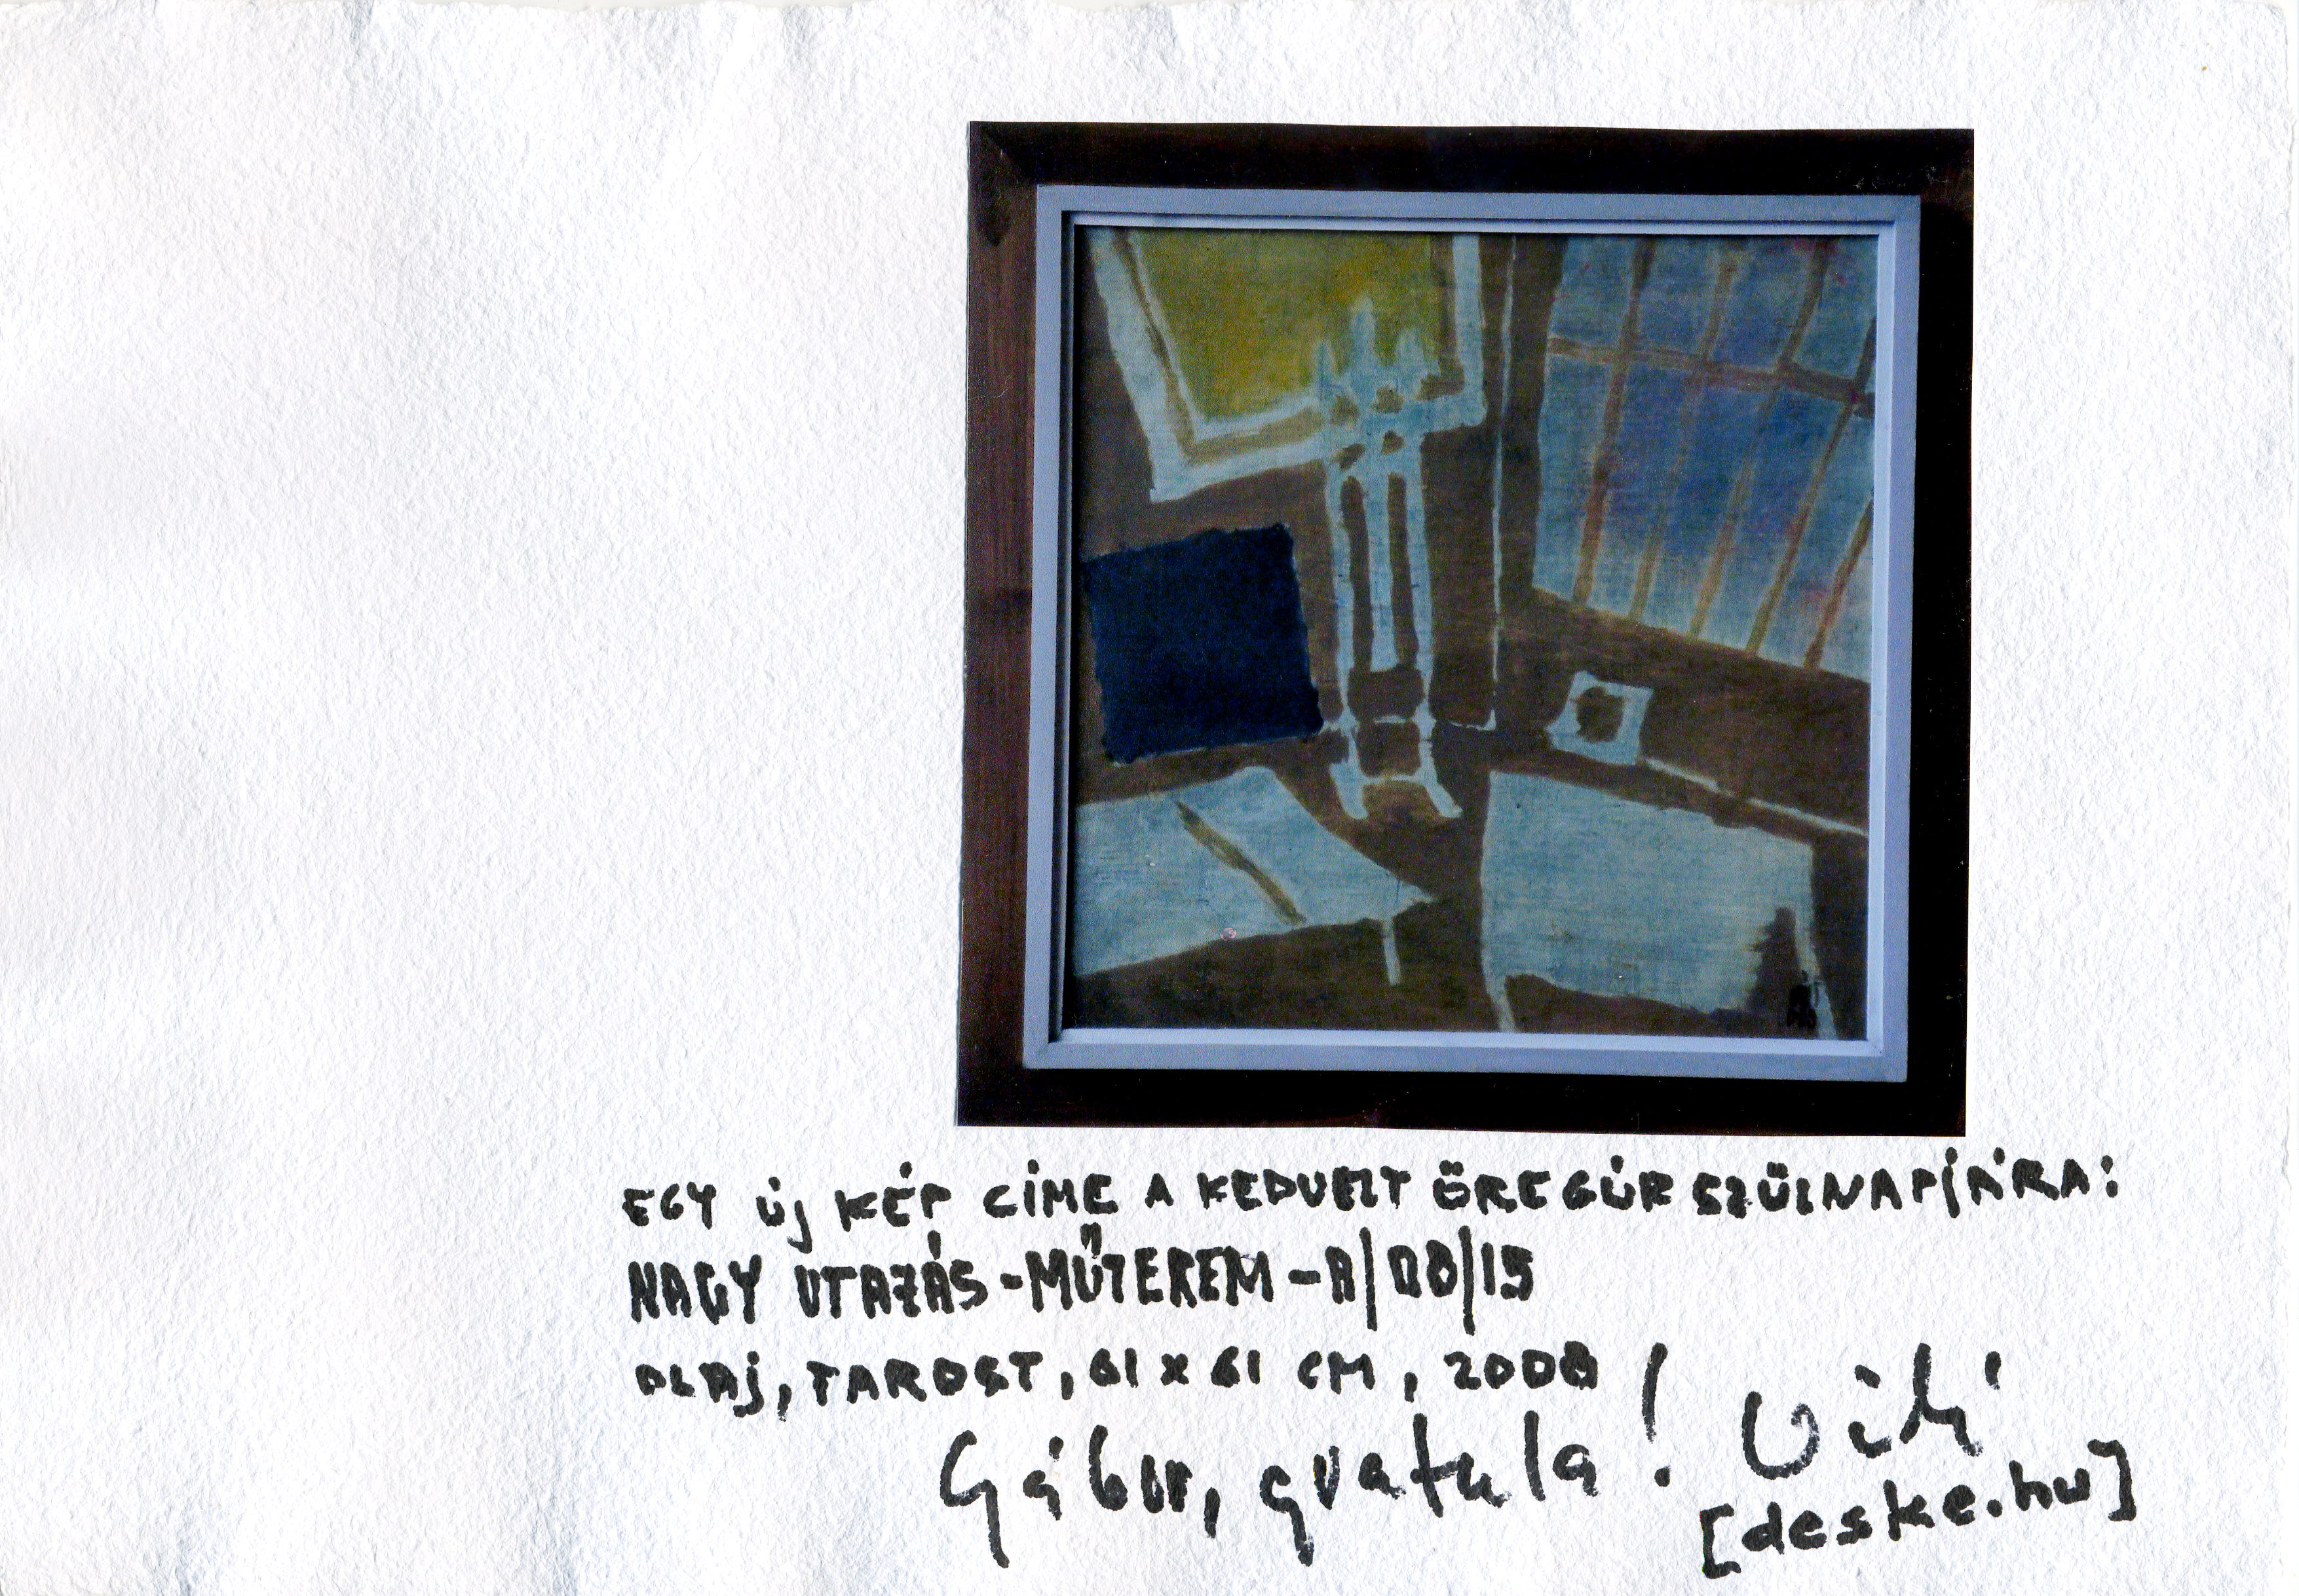 EGY ÚJ KÉP CÍME A KEDVELT ÖREGÚR SZÜLNAPJÁRA:
NAGY UTAZÁS-MŰTEREM-A/08/15
OLAJ, FAROST, 61 x 61 CM, 2008
Gábor, gratula! Vili
[deske.hu]